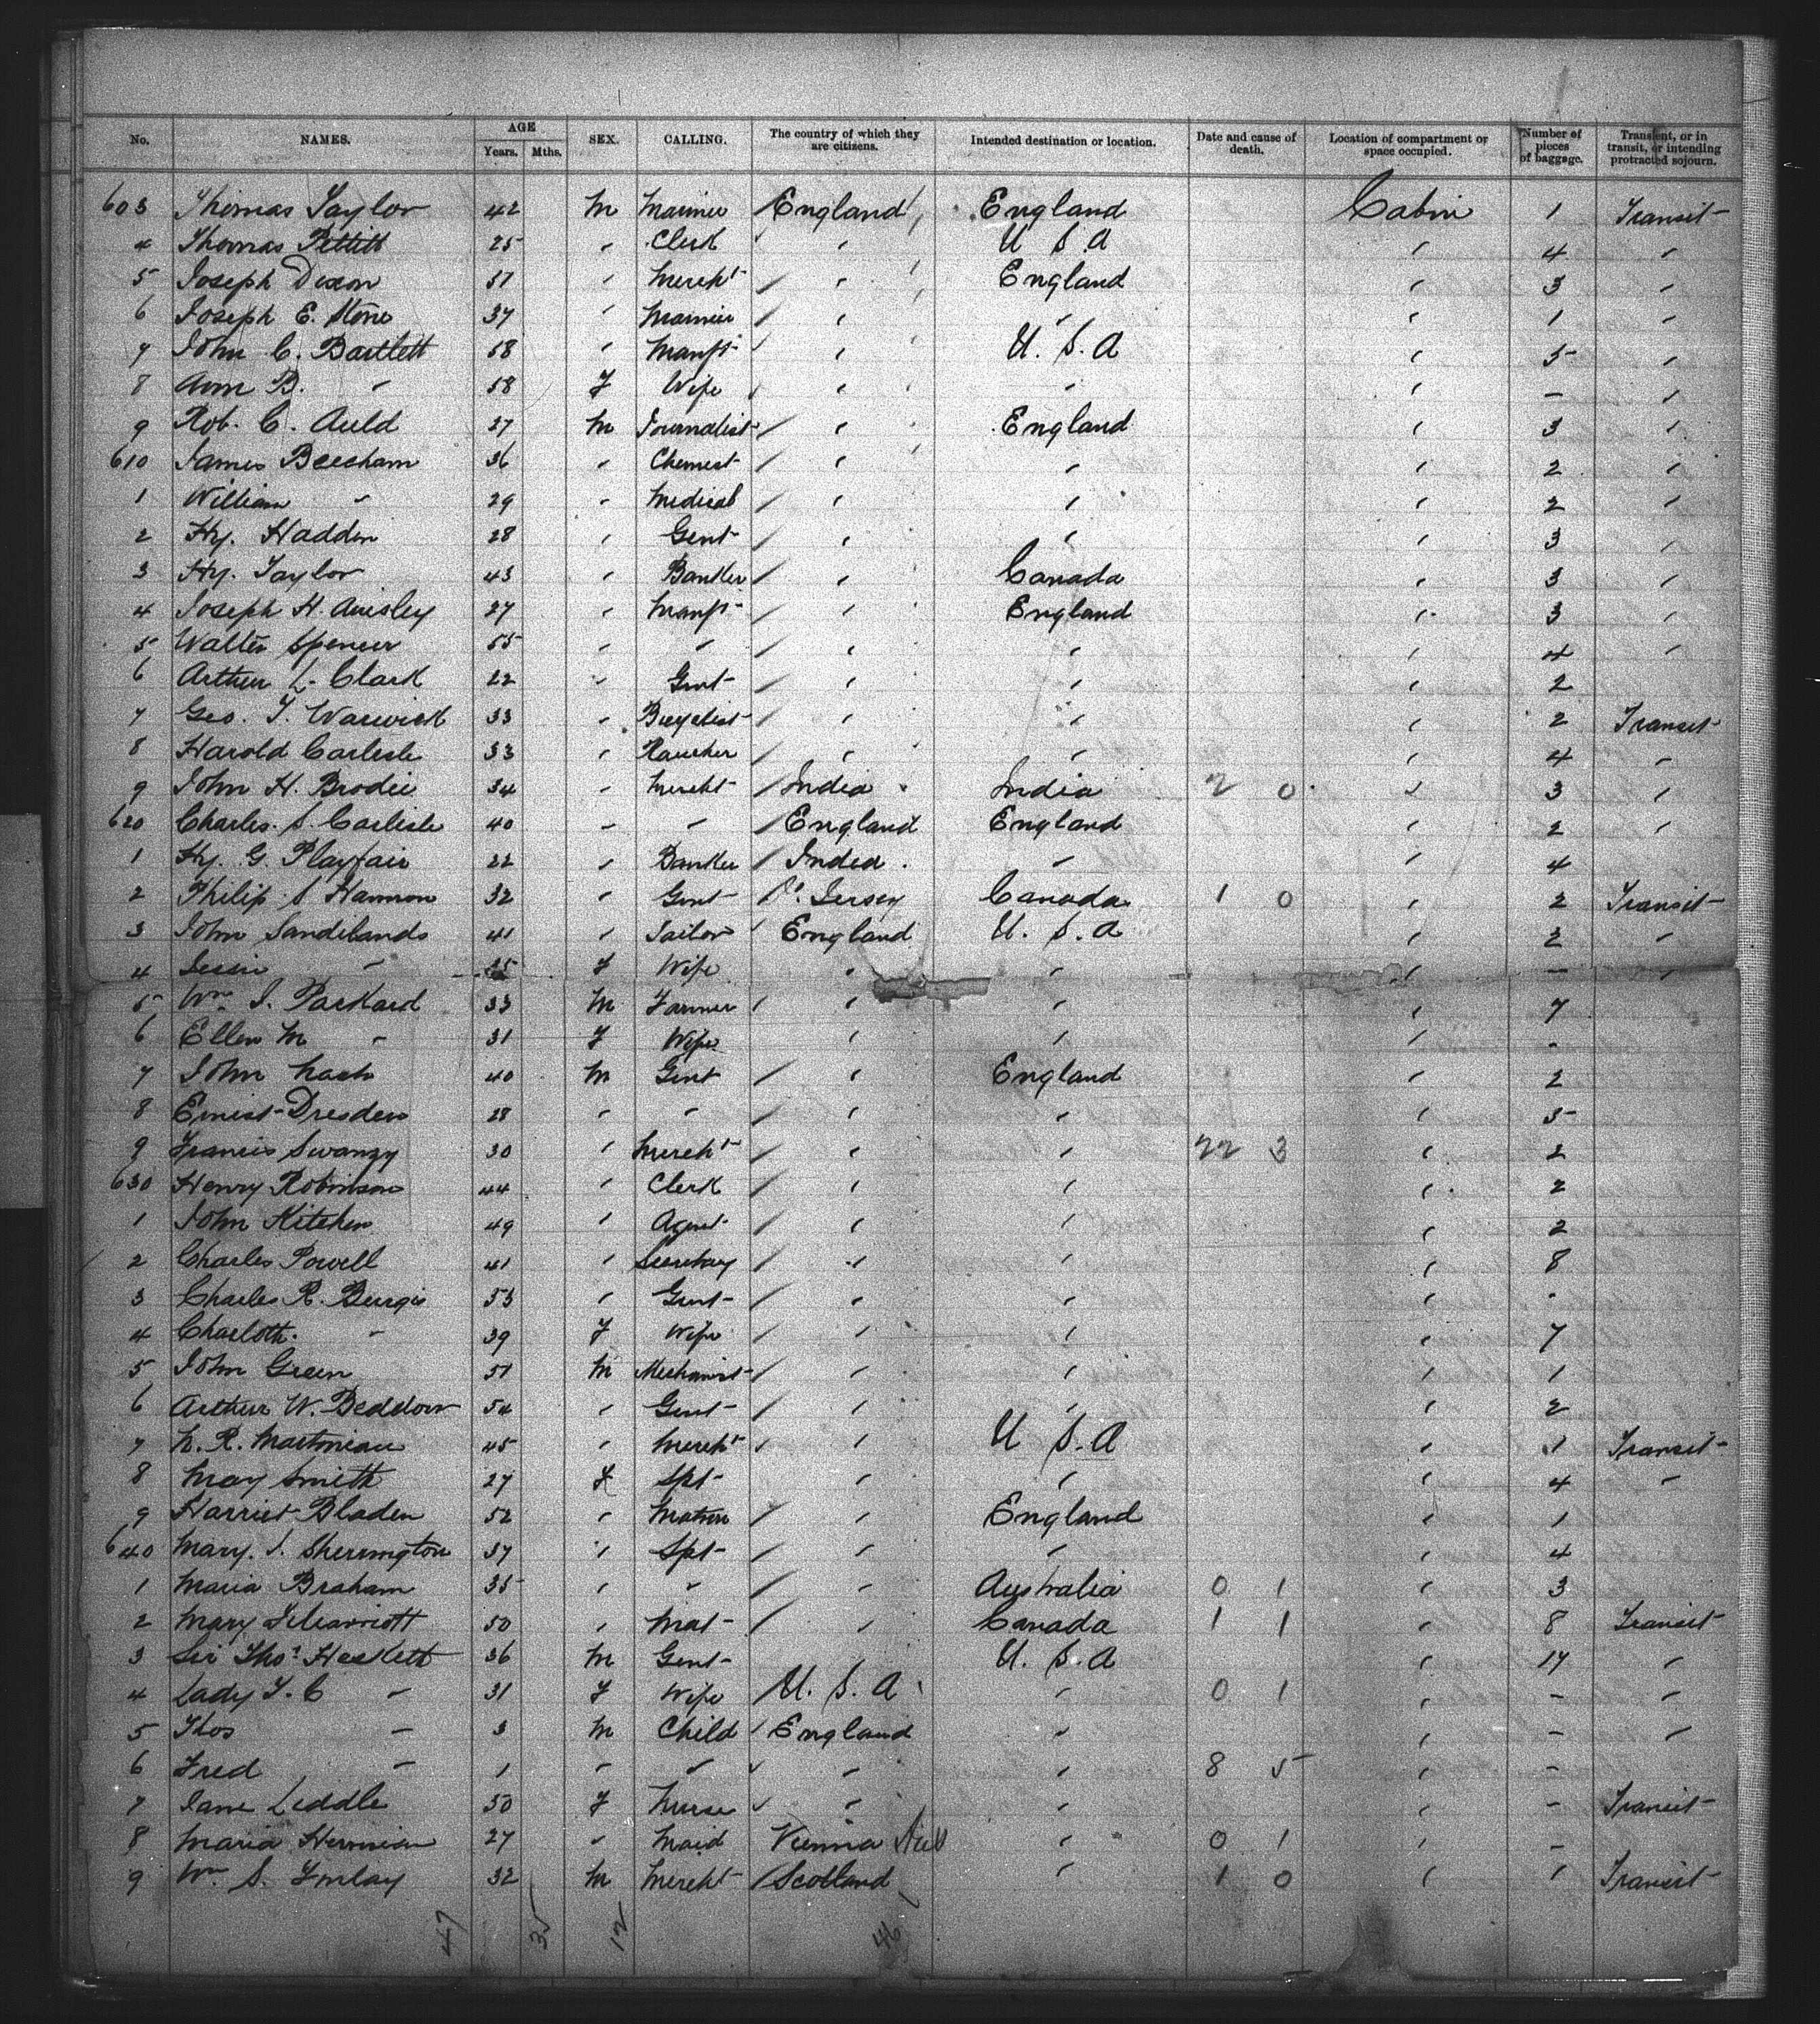 No. NAMES. AGE Years. Mths. SEX. CALLING. The country of which they are citizens. Intended destination or location. Date and cause of death. Location of compartment or space occupied. Number of pieces of baggage. Transient, or in transit, or intending protracted sojourn.
603 Thomas Taylor 42 M Mariner England England Cabin 1 Transit
4 Thomas Pettitt 25 " Clerk " U S A " 4 "
5 Joseph Dixon 51 " Mercht " England " 3 "
6 Joseph E. Stone 37 " Mariner " " " 1 "
7 John C. Bartlett 58 " Manfr " U. S. A " 5 "
8 Ann B. " 58 F Wife " " " - "
9 Rob. C. Auld 27 M Journalist " England " 3 "
610 James Beecham 36 " Chemist " " " 2 "
1 William " 29 " Medical " " " 2 "
2 Hy. Haddin 28 " Gent " " " 3 "
3 Hy. Taylor 43 " Banker " Canada " 3 "
4 Joseph H. Ainsley 27 " Manfr " England " 3 "
5 Walter Spencer 55 " " " " " 4 "
6 Arthur L. Clark 22 " Gent " " " 2
7 Geo. T. Warwick 33 " Bicyclist " " " 2 Transit
8 Harold Carlisle 33 " Rancher " " " 4 "
9 John H. Brodie 34 " Mercht India India 2 0 " 3 "
620 Charles. S. Carlisle 40 " " England England " 2 "
1 Hy. G. Playfair 22 " Banker India " " 4
2 Philip S Hamron 32 " Gent Jersey Canada 1 0 " 2 Transit
3 John Sandilands 41 " Sailor England U. S. A " 2 "
4 Jessie " 25 F Wife " " " - "
5 Wm J. Packard 33 M Farmer " " " 7
6 Ellen M " 31 F Wife " " " -
7 John Nash 40 M Gent " England " 2
8 Ernest Dresden 28 " " " " " 5
9 Francis Swanzy 30 " Mercht " " 22 3 " 2
630 Henry Robinson 44 " Clerk " " " 2
1 John Kitchen 49 " Agent " " " 2
2 Charles Powell 41 " Secretary " " " 8
3 Charles R. Burgis 53 " Gent " " " -
4 Charloth. " 39 F Wife " " " 7
5 John Green 51 M Mechanist " " " 1
6 Arthur W. Beddow 54 " Gent " " " 2
7 N. R. Martonian 45 " Mercht " U S. A " 1 Transit
8 May Smith 27 F Spt " " " 4 "
9 Harriet Bladen 52 " Matron " England " 1
640 Mary. J. Sherrington 37 " Spt " " " 4
1 Maria Braham 35 " " " Australia 0 1 " 3
2 Mary 50 " Mat " Canada 1 1 " 8 Transit
3 Sir Thos Heskett 36 M Gent U. S. A " 17 "
4 Lady F. C " 31 F Wife U. S. A " 0 1 " - "
5 Thos " 3 M Child England " " - "
6 Fred " 1 " " " " 8 5 " -
7 Jane Liddle 50 F Nurse " " " - Transit
8 Maria Herrnian 27 " Maid Vienna " 0 1 " -
9 Wm S. Finlay 32 M Mercht Scotland " 1 0 " 1 Transit
47 35 12 46